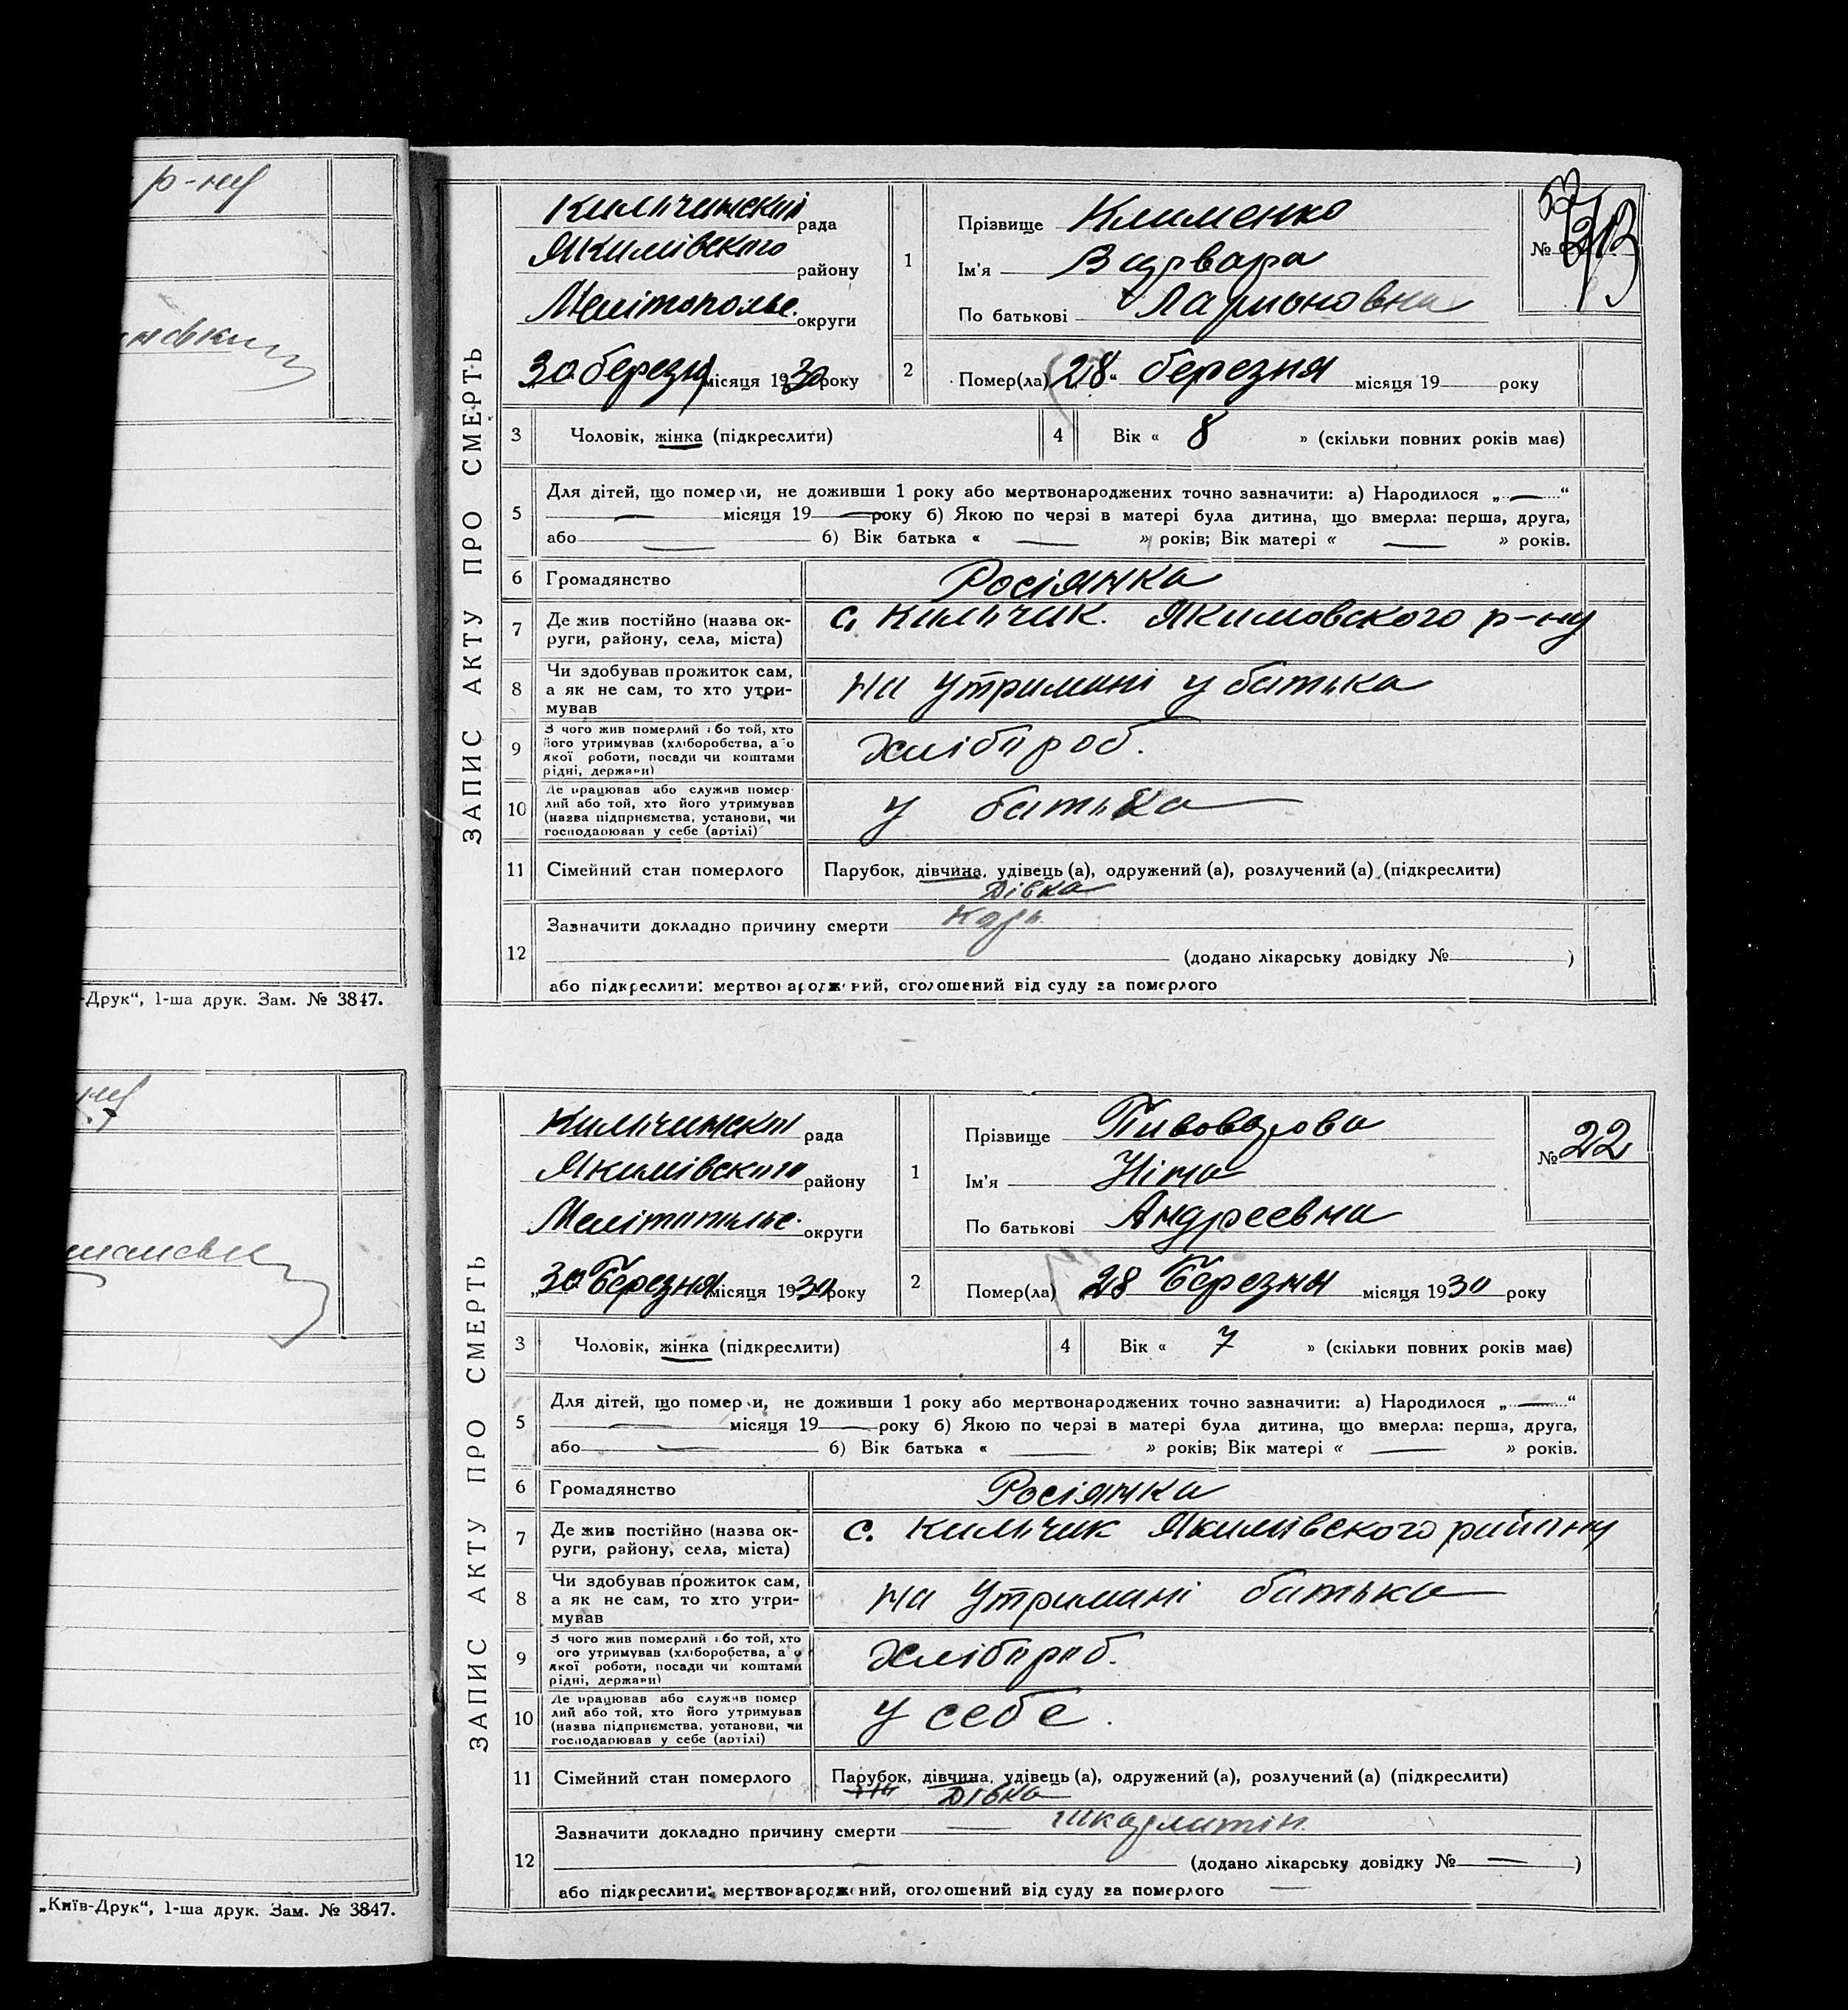 р-ну
„Київ-Друк“, 1-ша друк. Зам. № 3847.
-Друк“, 1-ша друк. Зам. № 3847.
ЗАПИС АКТУ ПРО СМЕРТЬ
Кильчинский рада
Якимівского району
Мелітопольс. округи
30 березня місяця 1930 року
1
Прізвище Клименко
Ім'я Варвара
По батькові Ларионовна
№
2
Помер(ла) „28“ березня місяця 19 року
3 Чоловік, жінка (підкреслити)
4 Вік « 8 » (скільки повних років має)
5 Для дітей, що померли, не доживши 1 року або мертвонароджених точно зазначити: а) Народилося „ — “
— місяця 19 — року б) Якою по черзі в матері була дитина, що вмерла: перша, друга,
або — б) Вік батька « — » років; Вік матері « — » років.
6 Громадянство Росіянка
7 Де жив постійно (назва ок-
руги, району, села, міста) с. Кильчик. Якимовского р-ну
8 Чи здобував прожиток сам,
а як не сам, то хто утри-
мував На утримані у батька
9 З чого жив померлий або той, хто
його утримував (хліборобства, або
якої роботи, посади чи коштами
рідні, держави) Хлібороб.
10 Де працював або служив помер-
лий або той, хто його утримував
(назва підприємства, установи, чи
господарював у себе (артілі) у батька
11 Сімейний стан померлого Парубок, дівчина, удівець (а), одружений (а), розлучений (а) (підкреслити)
Дівка
12 Зазначити докладно причину смерти
(додано лікарську довідку № )
або підкреслити: мертвонароджений, оголошений від суду за померлого
ЗАПИС АКТУ ПРО СМЕРТЬ
Кильчинский рада
Якимівского району
Мелітопольс. округи
„30 Березня місяця 1930 року
1
Прізвище Пивоварова
Ім'я Ніна
По батькові Андреевна
№ 22
2
Помер(ла) 28 Березня місяця 1930 року
3 Чоловік, жінка (підкреслити)
4 Вік « 7 » (скільки повних років має)
5 Для дітей, що померли, не доживши 1 року або мертвонароджених точно зазначити: а) Народилося „ — “
— місяця 19 — року б) Якою по черзі в матері була дитина, що вмерла: перша, друга,
або — б) Вік батька « — » років; Вік матері « — » років.
6 Громадянство Росіянка
7 Де жив постійно (назва ок-
руги, району, села, міста) с. Кильчик Якимівского району
8 Чи здобував прожиток сам,
а як не сам, то хто утри-
мував На утримані батька
9 З чого жив померлий або той, хто
його утримував (хліборобства, або
якої роботи, посади чи коштами
рідні, держави) Хлібороб.
10 Де працював або служив помер
лий або той, хто його утримував
(назва підприємства, установи, чи
господарював у себе (артілі) У себе.
11 Сімейний стан померлого Парубок, дівчина, удівець (а), одружений (а), розлучений (а) (підкреслити)
Дівка
12 Зазначити докладно причину смерти — шкарлатін.
(додано лікарську довідку № — )
або підкреслити: мертвонароджений, оголошений від суду за померлого —